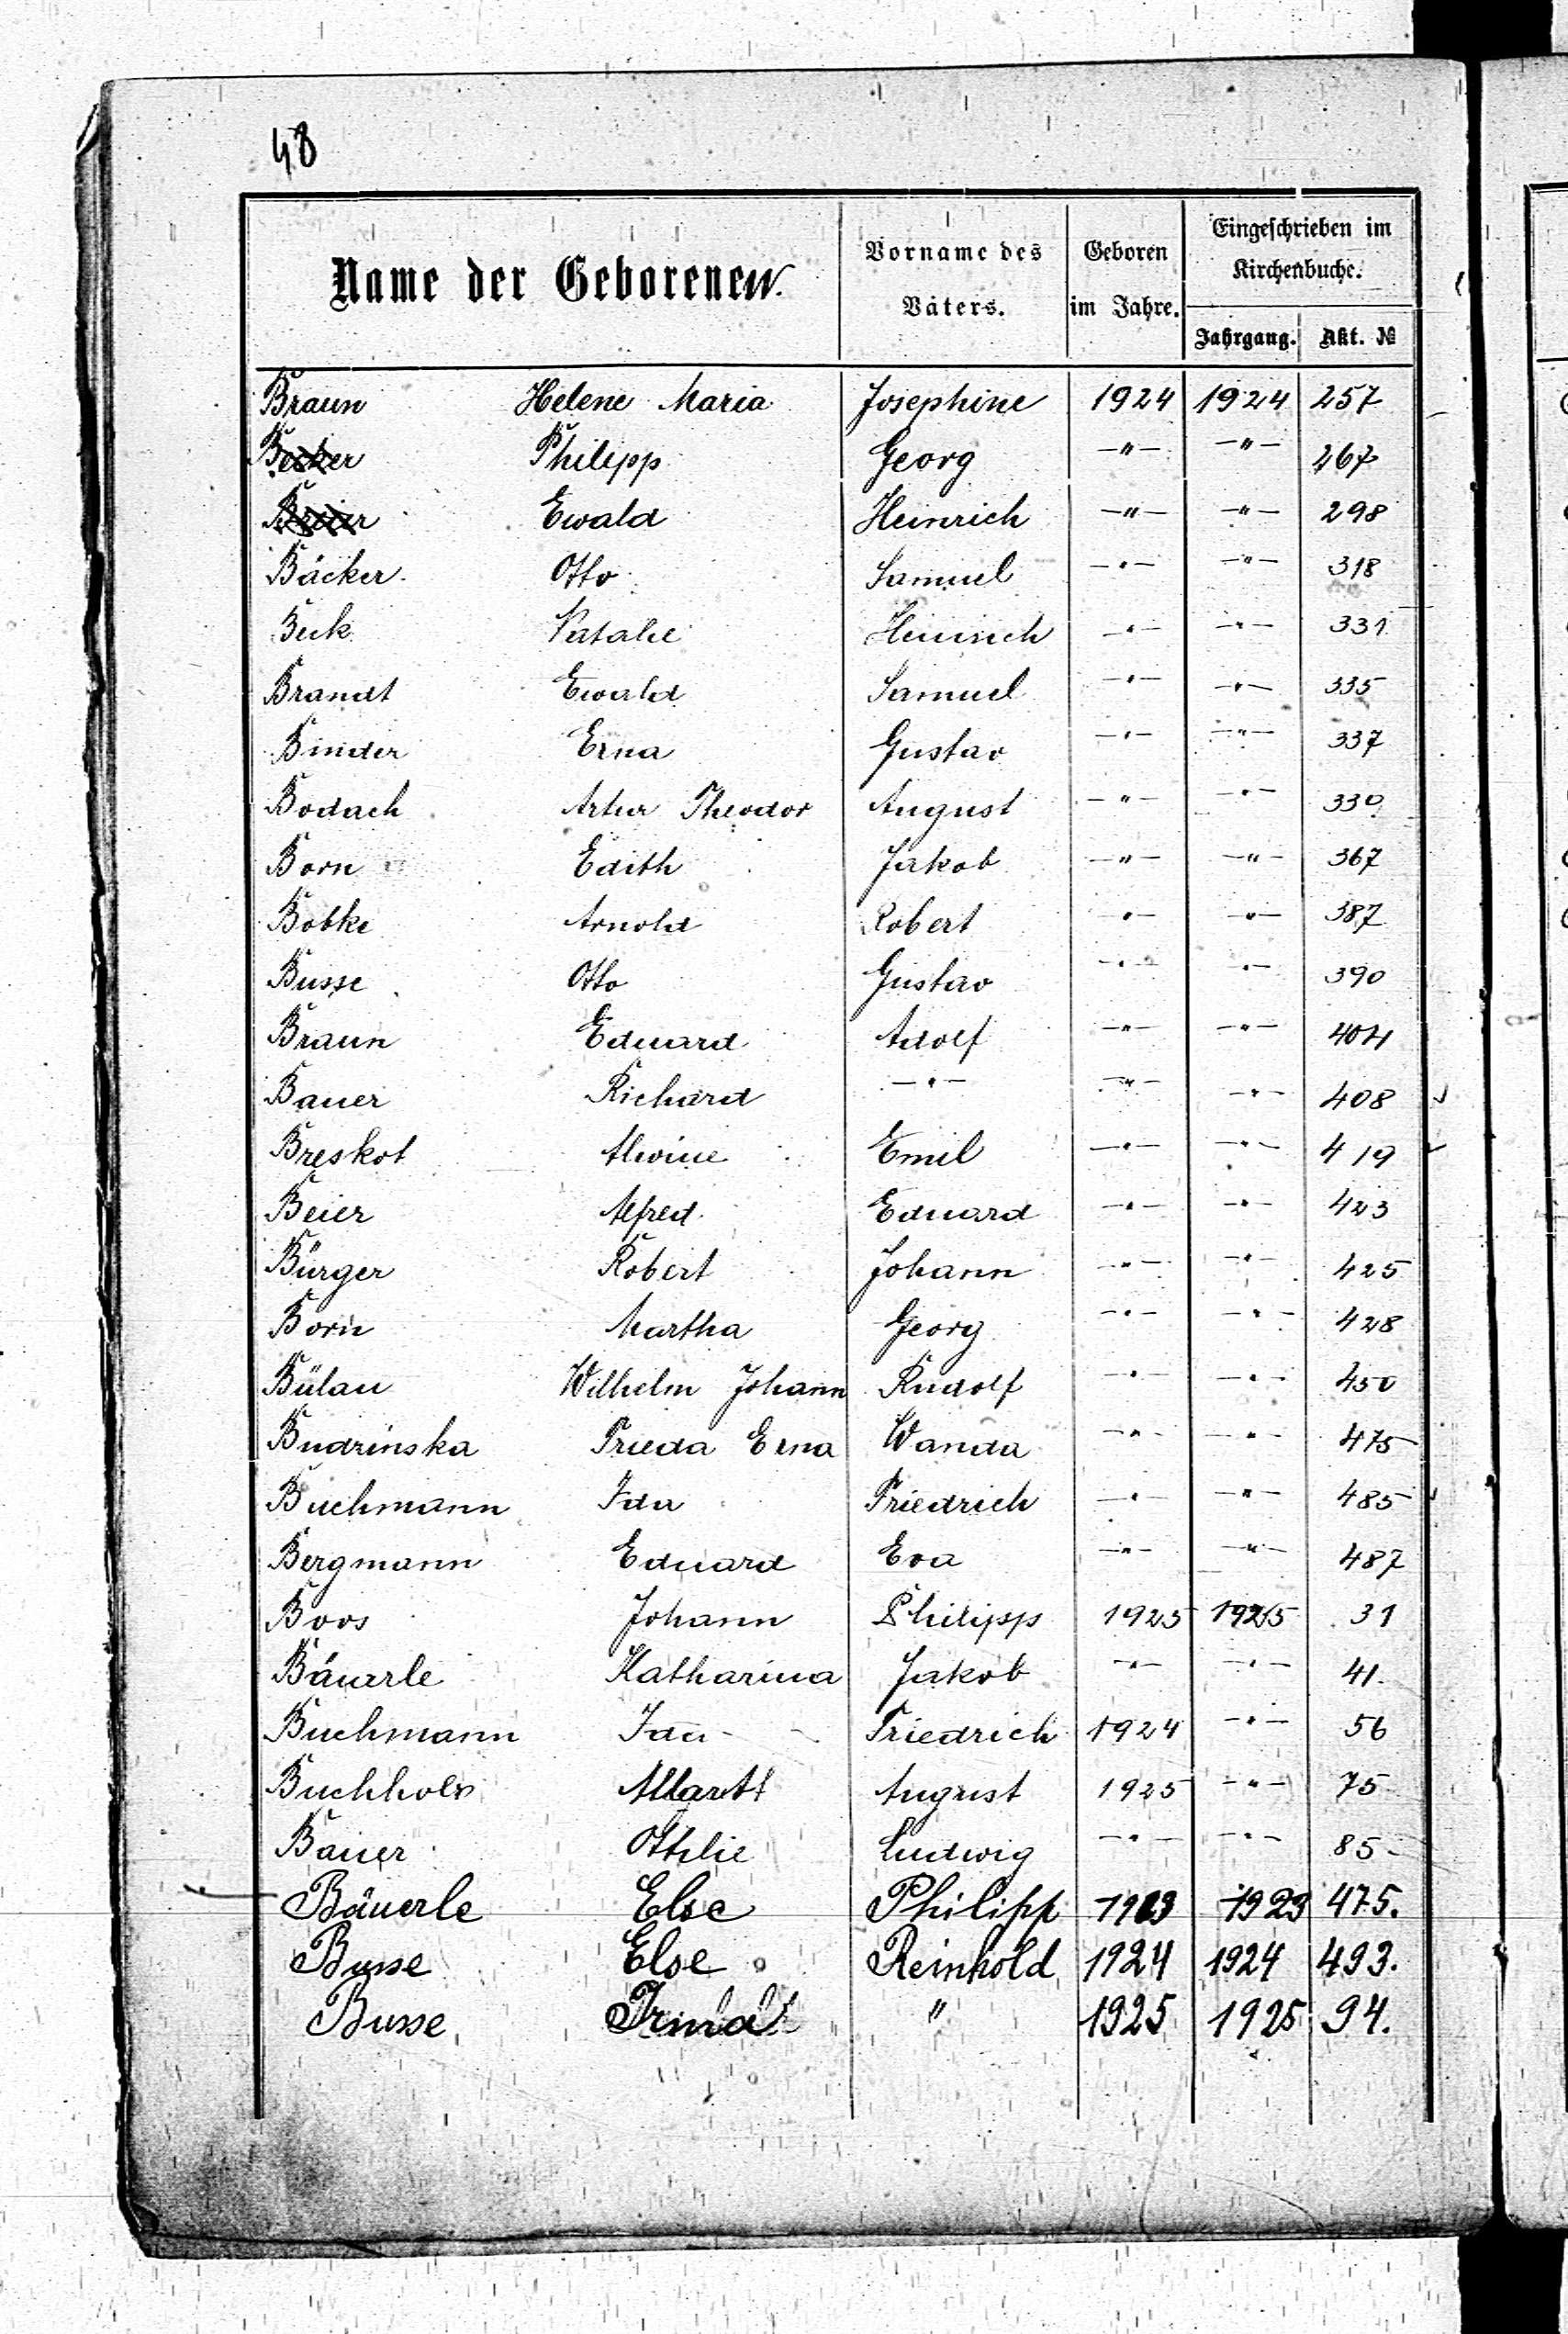 48
Name der Geborenen.
Vorname des Vaters.
Geboren im Jahre.
Eingeschrieben im Kirchenbuche.
Jahrgang. Akt. №
Braun Helene Maria Josephine 1924 1924 257
Becker Philipp Georg -"- -"- 267
Beier Ewald Heinrich -"- -"- 298
Bäcker Otto Samuel -"- -"- 318
Beck Natalie Heinrich -"- -"- 331
Brandt Ewald Samuel -"- -"- 335
Binder Erna Gustav -"- -"- 337
Bodach Artur Theodor August -"- -"- 330
Born Edith Jakob -"- -"- 367
Bobke Arnold Robert -"- -"- 387
Busse Otto Gustav -"- -"- 390
Braun Eduard Adolf -"- -"- 404
Bauer Richard -"- -"- -"- 408
Breskot Alwine Emil -"- -"- 419
Beier Alfred Eduard -"- -"- 423
Bürger Robert Johann -"- -"- 425
Born Martha Georg -"- -"- 428
Bülau Wilhelm Johann Rudolf -"- -"- 450
Budrinska Frieda Erna Wanda -"- -"- 475
Buchmann Ida Friedrich -"- -"- 485
Bergmann Eduard Eva -"- -"- 487
Boos Johann Philipp 1925 1925 31
Bäuerle Katharina Jakob -"- -"- 41.
Buchmann Ida Friedrich 1924 -"- 56
Buchholz August 1925 -"- 75
Bauer Ottilie Ludwig -"- -"- 85
Bäuerle Else Philipp 1923 1923 475.
Busse Else Reinhold 1924 1924 493.
Busse Irma " 1925 1925 94.